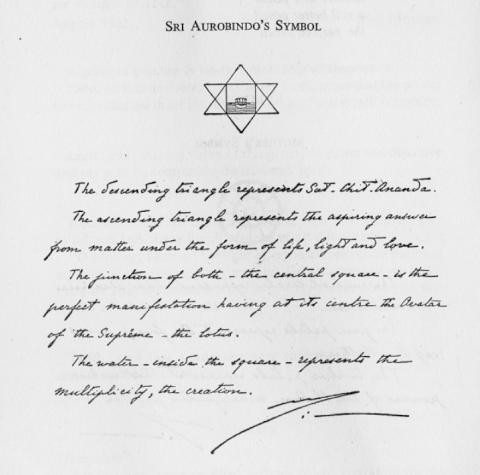 SRI AUROBINDO'S SYMBOL
The descending triangle represents Sat-Chit-Ananda.
The ascending triangle represents the aspiring answer
from matter under the form of life, light and love.
The junction of both – the central square – is the
perfect manifestation having at its centre the Avatar
of the Suprême – the lotus.
The water – inside the square – represents the
multiplicity, the creation.